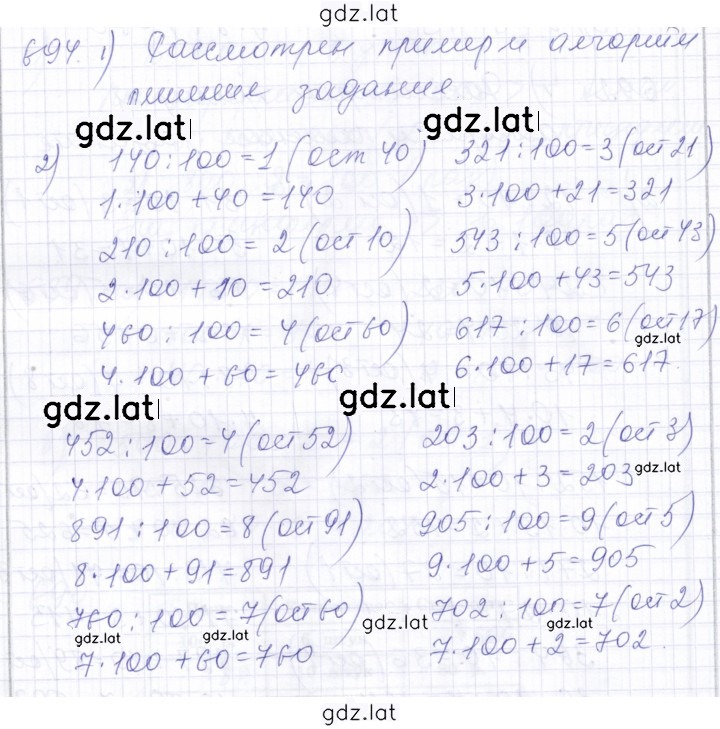 gdz.lat
694. 1) Рассмотрен пример и алгоритм
решение задания
gdz.lat gdz.lat
2) 140 : 100 = 1 (ост 40) 321 : 100 = 3 (ост 21)
1·100 + 40 = 140 3·100 + 21 = 321
210 : 100 = 2 (ост 10) 543 : 100 = 5 (ост 43)
2·100 + 10 = 210 5·100 + 43 = 543
460 : 100 = 4 (ост 60) 617 : 100 = 6 (ост 17)
gdz.lat
4·100 + 60 = 460 6·100 + 17 = 617.
gdz.lat
452 : 100 = 4 (ост 52) 203 : 100 = 2 (ост 3)
4·100 + 52 = 452 2·100 + 3 = 203 gdz.lat
891 : 100 = 8 (ост 91) 905 : 100 = 9 (ост 5)
8·100 + 91 = 891 9·100 + 5 = 905
760 : 100 = 7 (ост 60) 702 : 100 = 7 (ост 2)
gdz.lat gdz.lat gdz.lat gdz.lat
7·100 + 60 = 760 7·100 + 2 = 702.
gdz.lat